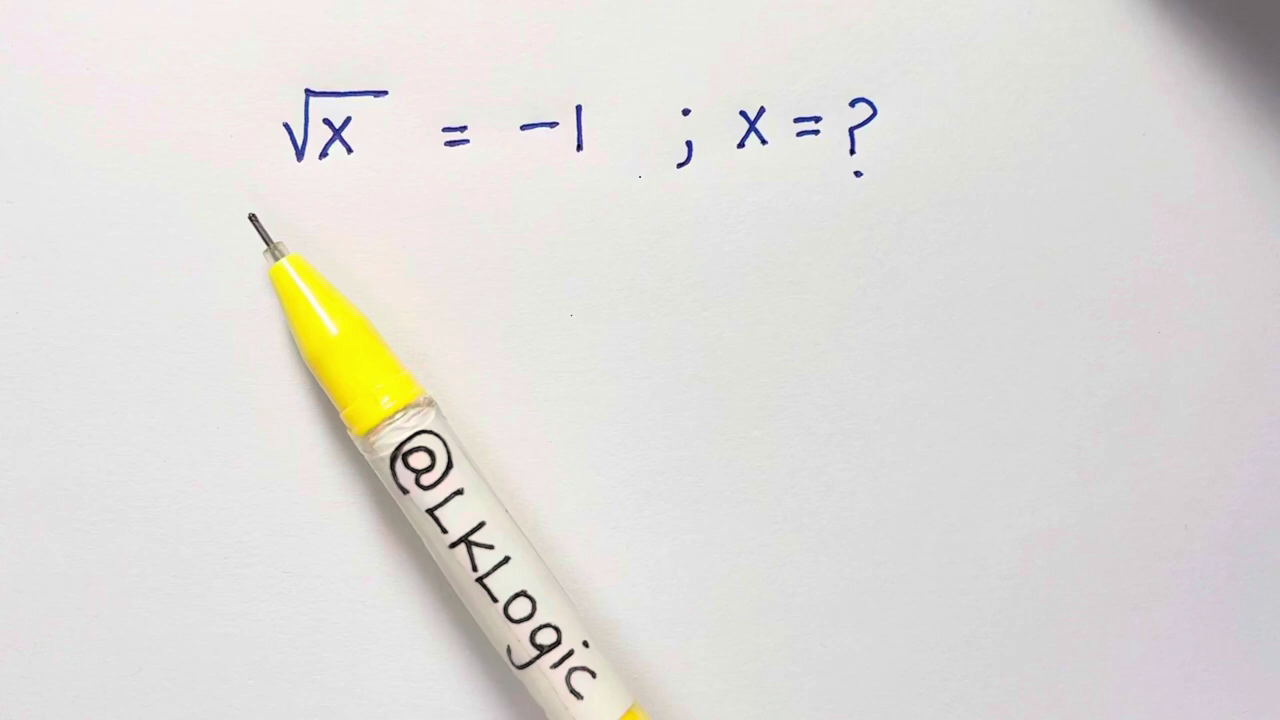 √x = -1 ; x = ?
@LKLogic